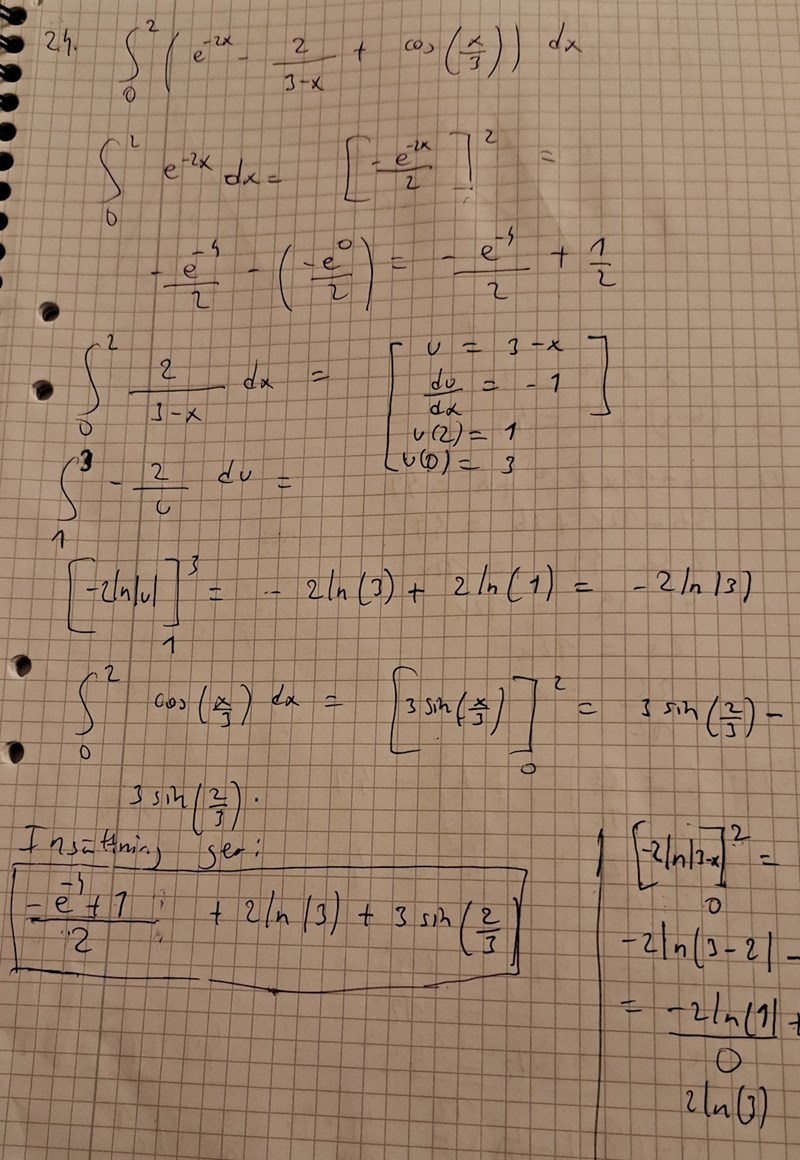 24. ∫₀² (e^{-2x} - 2/(3-x) + cos(x/3)) dx
∫₀² e^{-2x} dx = [-e^{-2x}/2]² =
-e^{-4}/2 - (-e^0/2) = -e^{-4}/2 + 1/2
∫₀² 2/(3-x) dx = [u = 3-x
du/dx = -1]
u(2) = 1
u(0) = 3
∫₁³ - 2/u du =
[-2ln|u|]₁³ = - 2ln(3) + 2ln(1) = -2ln|3)
∫₀² cos(x/3) dx = [3 sin(x/3)]₀² = 3 sin(2/3) -
3 sin(2/3).
Insättning ger:
(-e^{-4}+1)/2 + 2ln|3) + 3 sin(2/3)
[-2ln|3-x|]₀² =
-2ln(3-2| -
= -2ln(1| +
0
2ln(3)